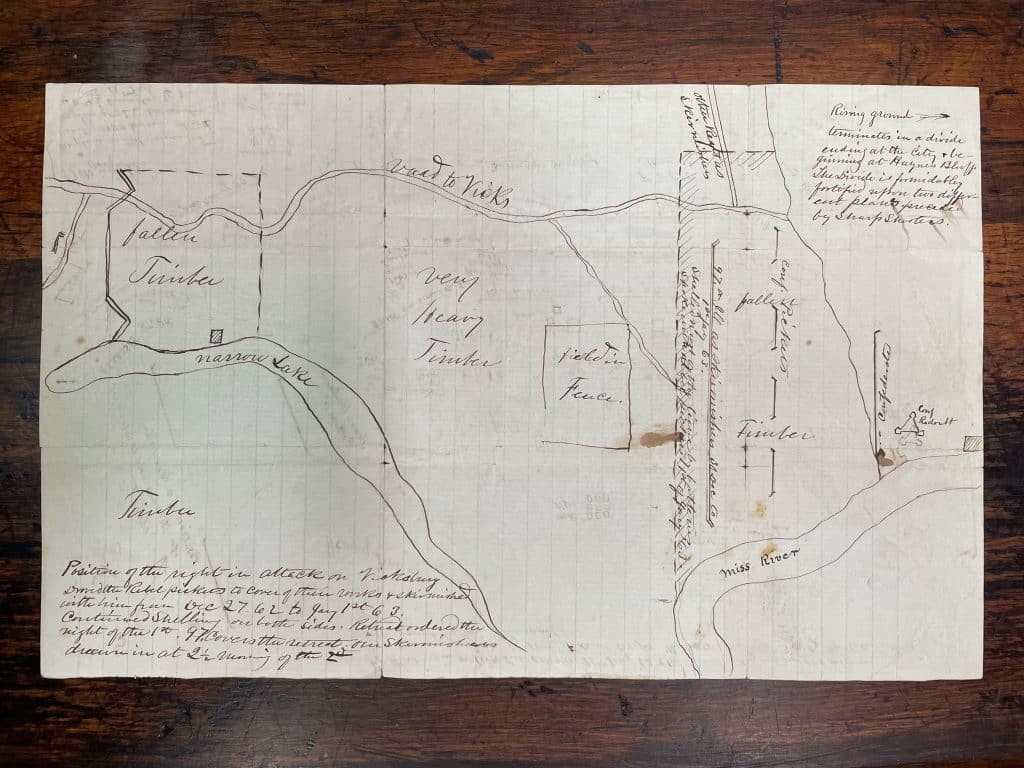 Rising ground
terminates in a divide
ending at the City & be-
ginning at Haynes Bluff.
The Divide is formidably
fortified upon two differ-
ent plans preceded
by Sharp Shooters.
road to Vicks
fallen
Timber
very
heavy
Timber
narrow Lake
field in
Fence.
Conf. Pickets
fallen
Timber
Confederate
Conf
Redoubt
Miss River
Timber
Position of the right in attack on Vicksburg
Drove the Rebel pickets to cover of their works & skirmished
with him from Dec 27. 62 to Jany 1st 63.
Continued Shelling on both sides. Retreat ordered the
night of the 1st. 97 Covers the retreat, our Skirmishers
drawn in at 2½ Morning of the 2d